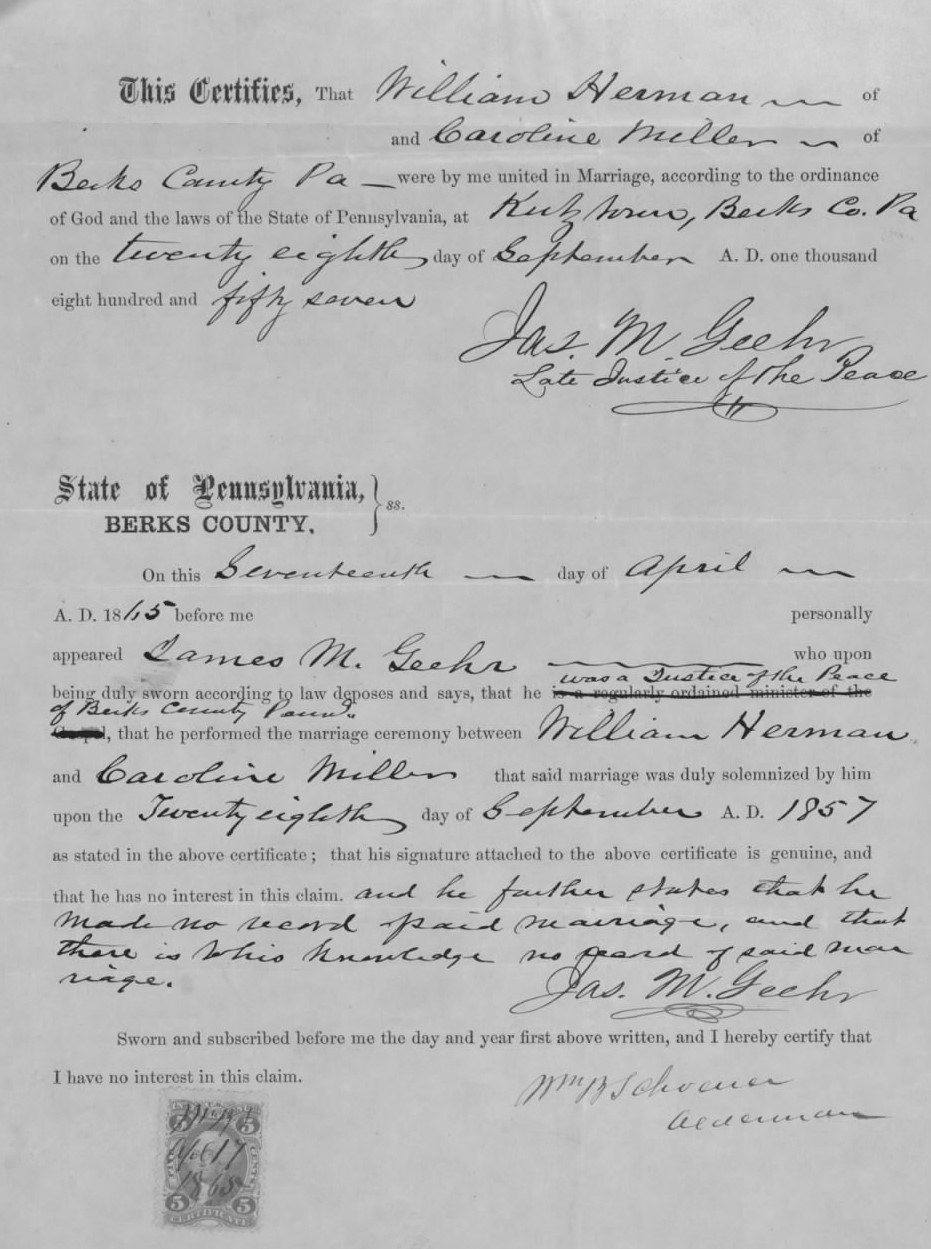 This Certifies, That William Herman of
and Caroline Miller of
Berks County Pa were by me united in Marriage, according to the ordinance
of God and the laws of the State of Pennsylvania, at Kutztown, Berks Co. Pa
on the twenty eighth day of September A. D. one thousand
eight hundred and fifty seven
Jas. M. Geehr
Late Justice of the Peace
State of Pennsylvania,
BERKS COUNTY. } ss.
On this Seventeenth day of April
A. D. 1865 before me personally
appeared James M. Geehr who upon
was a Justice of the Peace
being duly sworn according to law deposes and says, that he is a regularly ordained minister of the
of Berks County Penna.
Gospel, that he performed the marriage ceremony between William Herman
and Caroline Miller that said marriage was duly solemnized by him
upon the Twenty eighth day of September A. D. 1857
as stated in the above certificate; that his signature attached to the above certificate is genuine, and
that he has no interest in this claim. and he further states that he
made no record of said marriage, and that
there is to his knowledge no record of said mar
riage.
Jas. M. Geehr
Sworn and subscribed before me the day and year first above written, and I hereby certify that
I have no interest in this claim.
Wm B Schoener
Alderman
5 5
17
1865
5 5
CERTIFICATE